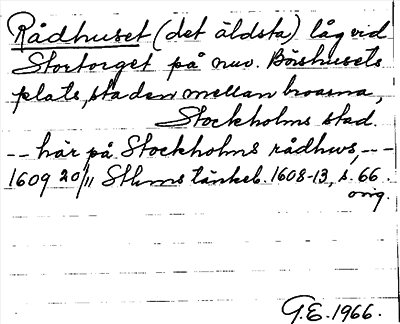 Rådhuset (det äldsta) låg vid
Stortorget på nuv. Börshusets
plats, staden mellan broarna,
Stockholms stad.
-- här på Stockholms rådhus, --
1609 20/11 Sthms tänkeb. 1608-13, s. 66.
orig.
G.E. 1966.